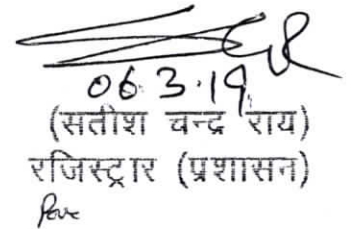 06.3.19
(सतीश चन्द्र राय)
रजिस्ट्रार (प्रशासन)